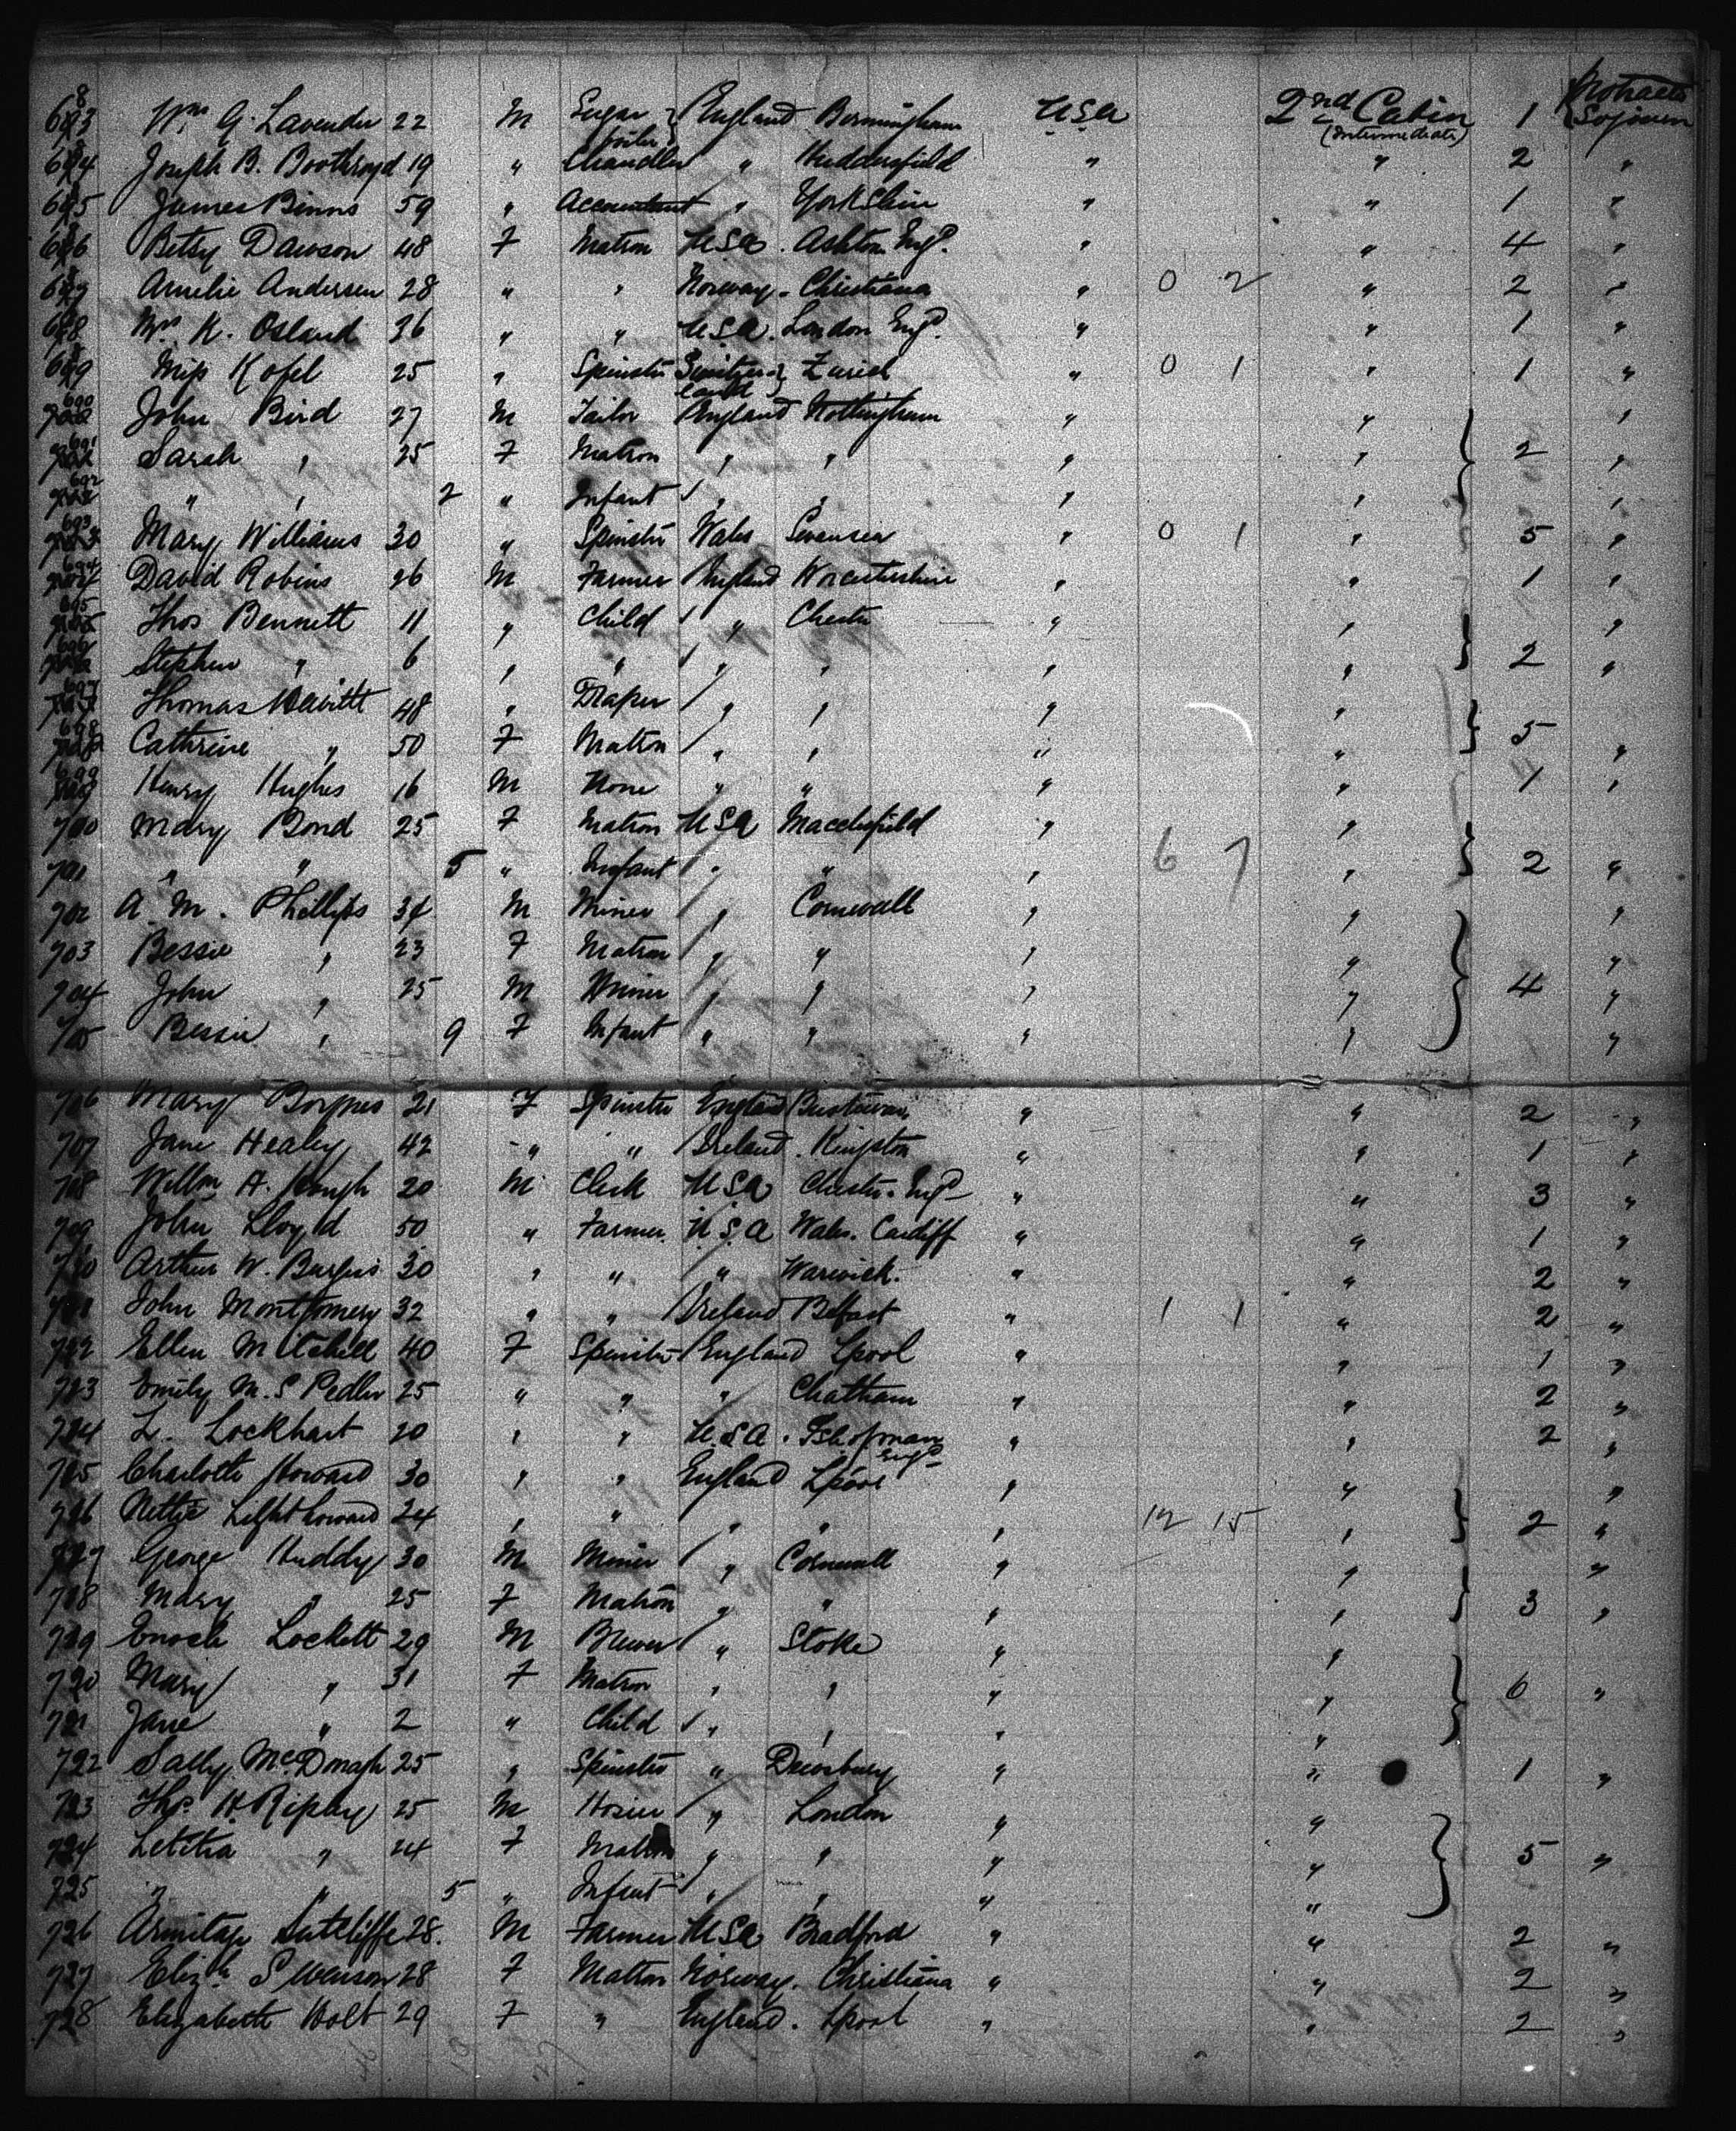 683 Wm G. Lavender 22 M Sugar boiler } England Birmingham U.S.A 2nd Cabin (Intermediate) 1 Protracted Sojourn
684 Joseph B. Boothroyd 19 " Chandler " Huddersfield " " 2 "
685 James Binns 59 " Accountant " Yorkshire " " 1 "
686 Betsy Dawson 48 F Matron U.S.A. Ashton Engd. " " 4 "
687 Amelie Andersen 28 " " Norway. Christiana " 0 2 " 2 "
688 Mrs K. Osland 26 " " U.S.A. London Engd. " " 1 "
689 Miss Kofel 25 " Spinster Switzerland } Zurich " 0 1 " 1 "
690 John Bird 27 M Tailor England Nottingham " " "
691 Sarah " 25 F Matron " " " " } 2 "
692 " " 2 " Infant " " " " "
693 Mary Williams 30 " Spinster Wales Swansea " 0 1 " 5 "
694 David Robins 26 M Farmer England Worcestershire " " 1 "
695 Thos Bennett 11 " Child " Chester " " "
696 Stephen " 6 " " " " " " } 2 "
697 Thomas 48 " Draper " " " "
698 Cathrine " 50 F Matrn " " " " } 5 "
699 Henry Hughes 16 M None " " " " 1 "
700 Mary Bond 25 F Matron U.S.A Macclesfield " "
701 " " 5 " Infant " " " 6 7 " } 2 "
702 A. M. Phillips 34 M Miner " Cornwall " " "
703 Bessie " 23 F Matron " " " " "
704 John " 25 M Miner " " " " } 4 "
705 Bessie " 9 F Infant " " " " "
706 Mary 21 F Spinster England " " 2 "
707 Jane Healey 42 " " Ireland. Kingston " " 1 "
708 Willm A. Hough 20 M Clerk U.S.A Chester. Engd " " 3 "
709 John Lloyd 50 " Farmer. U.S.A Wales. Cardiff " " 1 "
710 Arthur W. 30 " " " Warwick. " " 2 "
711 John Montgomery 32 " " Ireland Belfast " 1 1 " 2 "
712 Ellen Mitchell 40 F Spinster England Lpool " " 1 "
713 Emily M. S Pedler 25 " " " Chatham " " 2 "
714 L. Lockhart 20 " " U.S.A. Engd " " 2 "
715 Charlotte Howard 30 " " England Lpool " " "
716 Nettie 24 " " " " " 12 15 " } 2 "
717 George Huddy 30 M Miner " Cornwall " " "
718 Mary " 25 F Matron " " " " } 3 "
719 Enoch Lockett 29 M Brewer " Stoke " "
720 Mary " 31 F Matron " " " " } 6 "
721 Jane " 2 " Child " " " "
722 Sally McDonagh 25 " Spinster " Dewsbury " " 1 "
723 Thos. H. Ripley 25 M Hosier " London " "
724 Letitia " 24 F Matron " " " " } 5 "
725 " " 5 " Infant " " " "
726 Armitage Sutcliffe 28. M Farmer U.S.A Bradford " " 2 "
727 Elizth Swenson 28 F Matron Norway. Christiana " " 2 "
728 Elizabeth Holt 29 F " England. Lpool " " 2 "